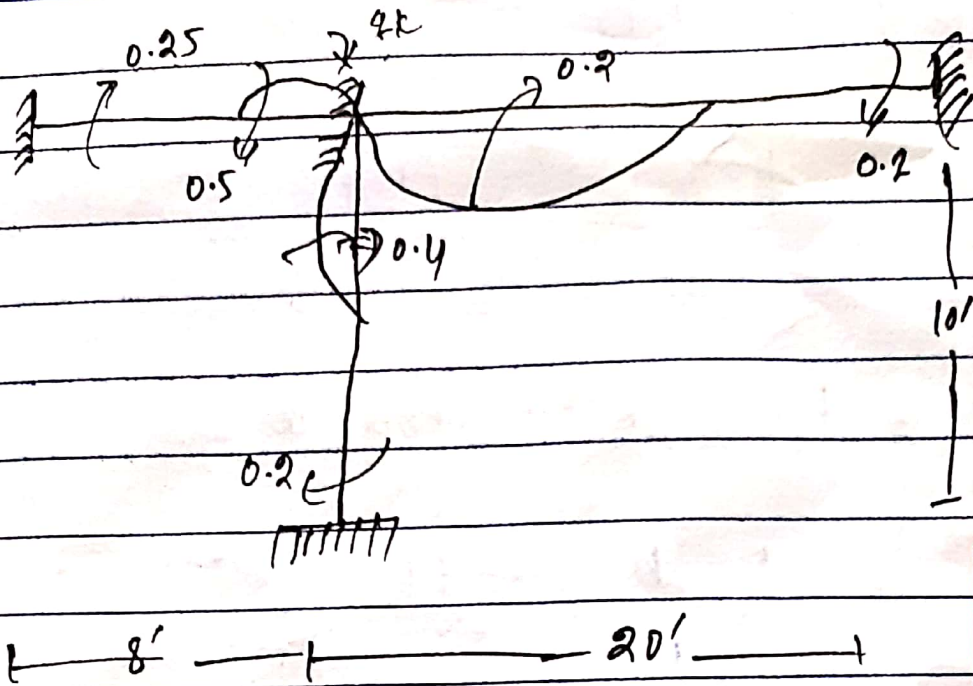 0.25
0.2
0.5
0.2
0.4
10'
0.2
8'
20'